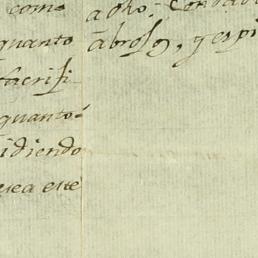 como
quanto
sacrifi-
quanto-
idiendo
ese a este
a oho. Con
abroso, y espi